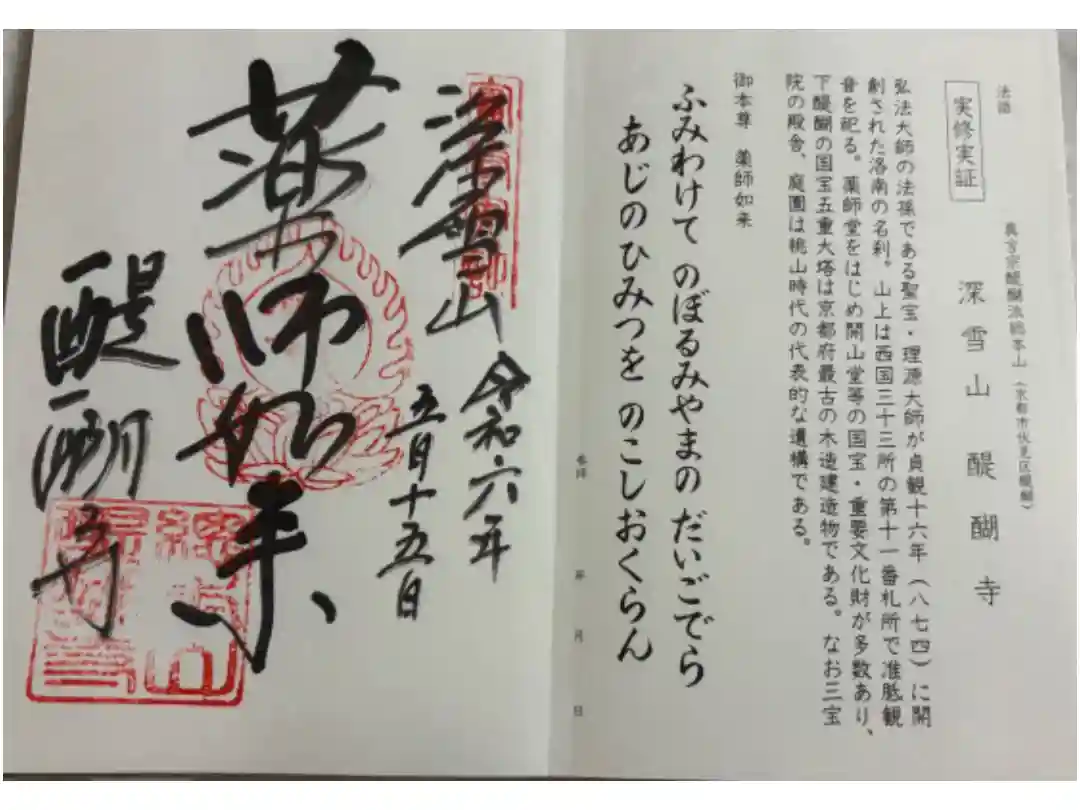 法話
実修実証
真言宗醍醐派総本山(京都市伏見区醍醐)
深雪山 醍醐寺
弘法大師の法孫である聖宝・理源大師が貞観十六年(八七四)に開
創された洛南の名刹。山上は西国三十三所の第十一番札所で准胝観
音を祀る。薬師堂をはじめ開山堂等の国宝・重要文化財が多数あり、
下醍醐の国宝五重大塔は京都府最古の木造建造物である。なお三宝
院の殿舎、庭園は桃山時代の代表的な遺構である。
御本尊 薬師如来
ふみわけて のぼるみやまの だいごでら
あじのひみつを のこしおくらん
参拝 年 月 日
令和六年
五月十五日
深雪山
薬師如来
醍醐寺